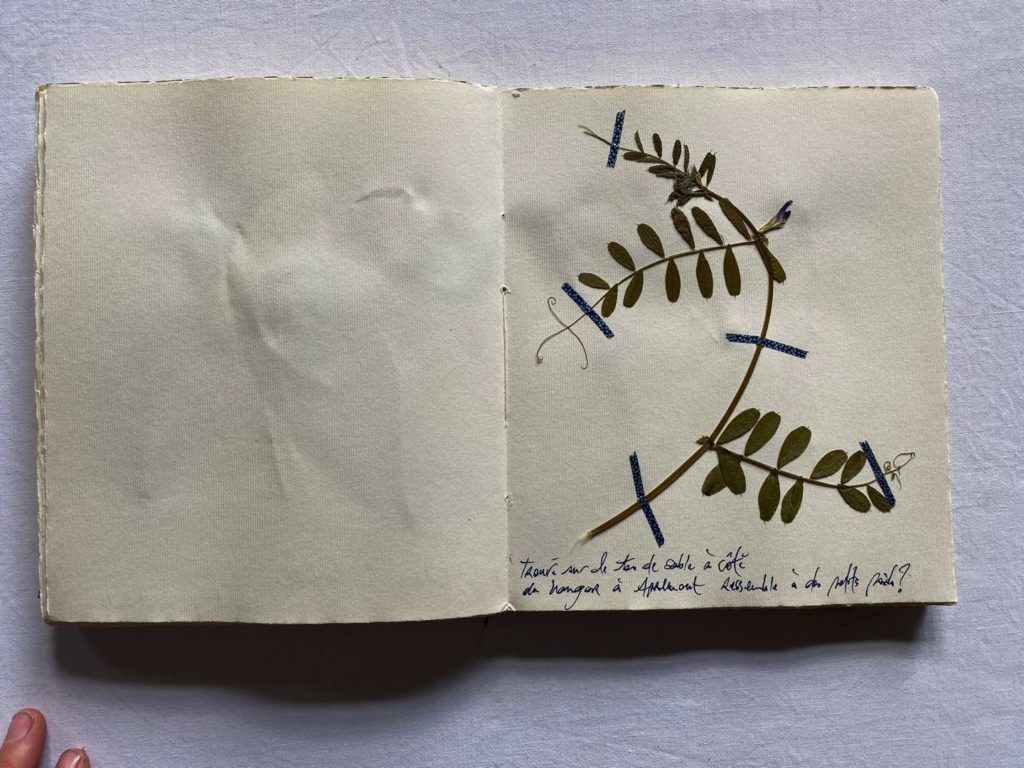 trouvé sur le tas de sable à côté
du hangar à Apremont Ressemble à des petits pois?